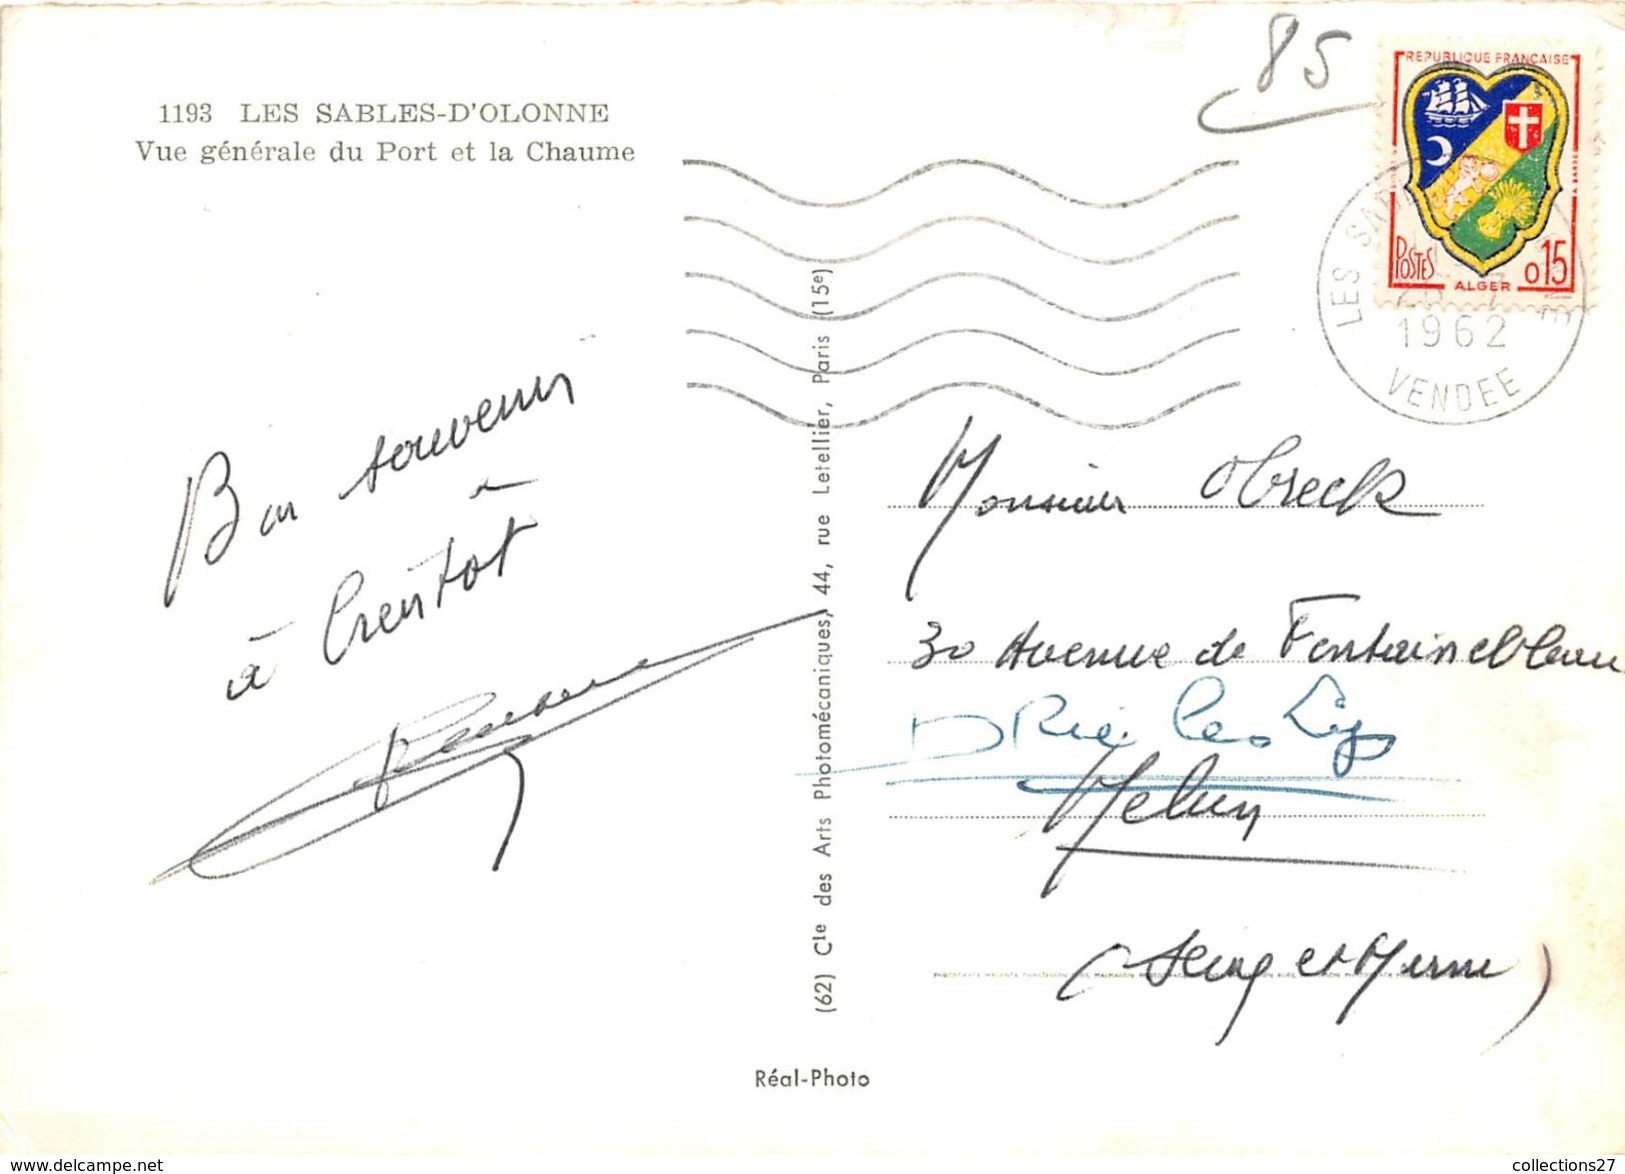 1193 LES SABLES-D'OLONNE
Vue générale du Port et la Chaume
85
REPUBLIQUE FRANÇAISE
POSTES
0,15
ALGER
LES SAB
1962
VENDEE
Bon souvenir
à bientôt
(62) Cie des Arts Photomécaniques, 44, rue Letellier, Paris (15e)
Monsieur Obreck
30 Avenue de Fontainebleau
Melun
(Seine et Marne)
Réal-Photo
delcampe.net
collections27